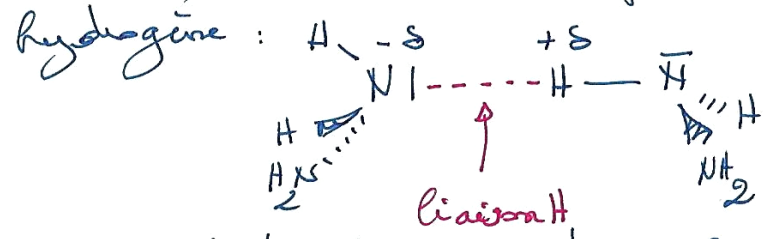 hydrogène : H - δ + δ
N | - - - - - H — N̅
H H
H₂N NH₂
liaison H